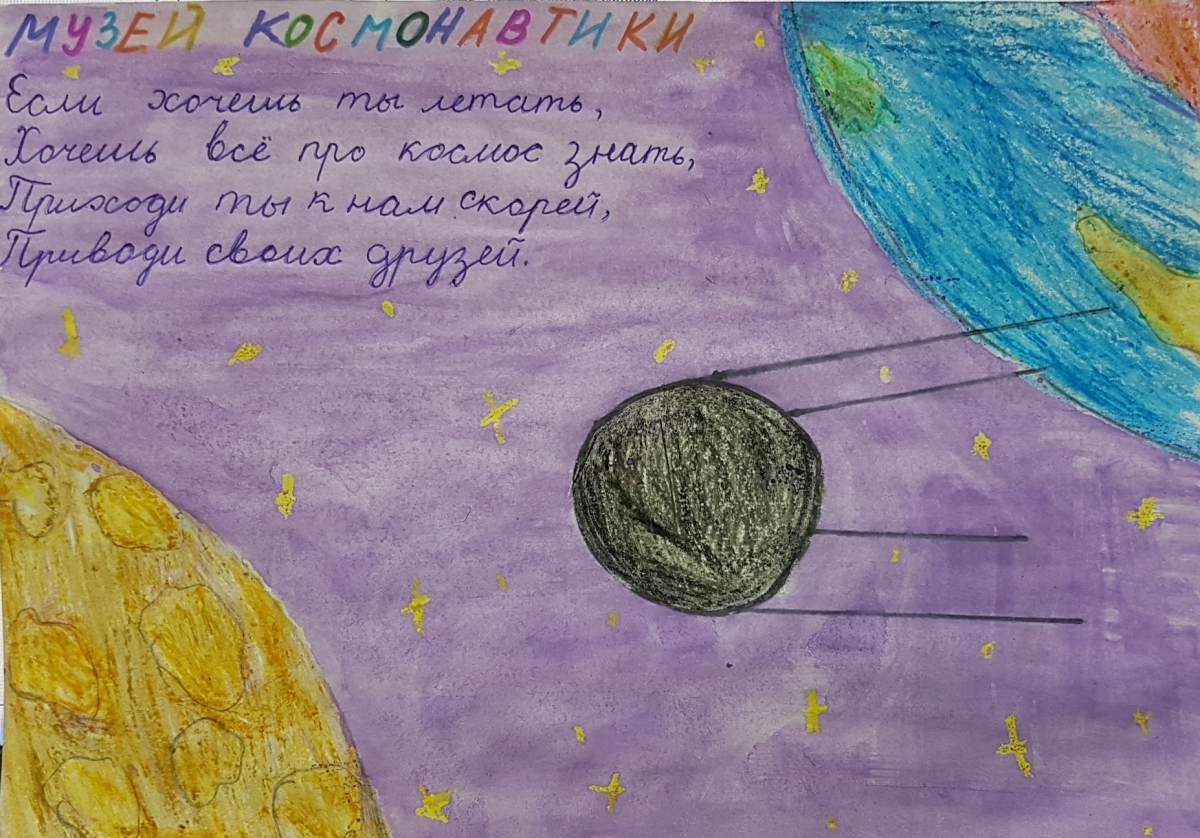 МУЗЕЙ КОСМОНАВТИКИ
Если хочешь ты летать,
Хочешь всё про космос знать,
Приходи ты к нам скорей,
Приводи своих друзей.